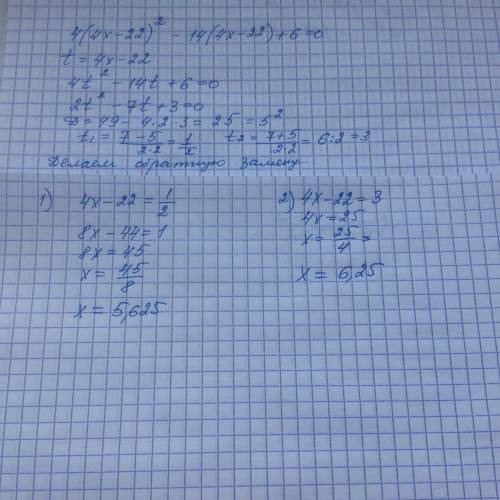 4(4x-22)² - 14(4x-22)+6=0
t = 4x-22
4t² - 14t + 6 = 0
2t² - 7t + 3 = 0
D = 49 - 4·2·3 = 25 = 5²
t₁ = (7-5)/(2·2) = 1/2   t₂ = (7+5)/(2·2) = 6:2 = 3
Делаем обратную замену
1) 4x-22 = 1/2
8x - 44 = 1
8x = 45
x = 45/8
x = 5,625
2) 4x-22 = 3
4x = 25
x = 25/4 =
x = 6,25